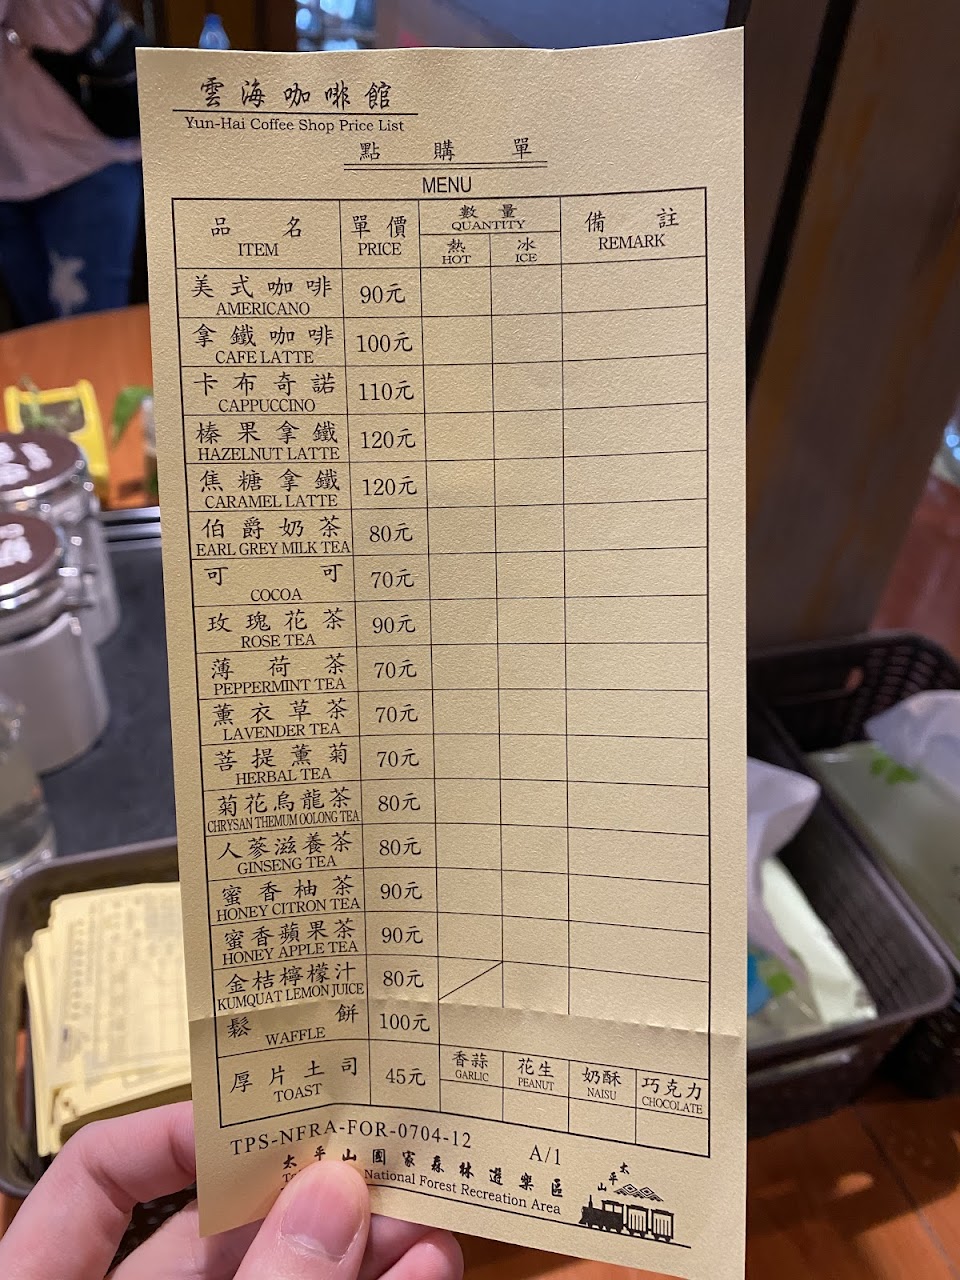 雲海咖啡館
Yun-Hai Coffee Shop Price List
點購單
MENU
品名 單價 數量 備註
ITEM PRICE QUANTITY REMARK
熱 冰
HOT ICE
美式咖啡 90元
AMERICANO
拿鐵咖啡 100元
CAFE LATTE
卡布奇諾 110元
CAPPUCCINO
榛果拿鐵 120元
HAZELNUT LATTE
焦糖拿鐵 120元
CARAMEL LATTE
伯爵奶茶 80元
EARL GREY MILK TEA
可可 70元
COCOA
玫瑰花茶 90元
ROSE TEA
薄荷茶 70元
PEPPERMINT TEA
薰衣草茶 70元
LAVENDER TEA
菩提薰菊 70元
HERBAL TEA
菊花烏龍茶 80元
CHRYSAN THEMUM OOLONG TEA
人蔘滋養茶 80元
GINSENG TEA
蜜香柚茶 90元
HONEY CITRON TEA
蜜香蘋果茶 90元
HONEY APPLE TEA
金桔檸檬汁 80元
KUMQUAT LEMON JUICE
鬆餅 100元
WAFFLE
厚片土司 45元 香蒜 花生 奶酥 巧克力
TOAST GARLIC PEANUT NAISU CHOCOLATE
TPS-NFRA-FOR-0704-12 A/1
太平山國家森林遊樂區
National Forest Recreation Area
太平山